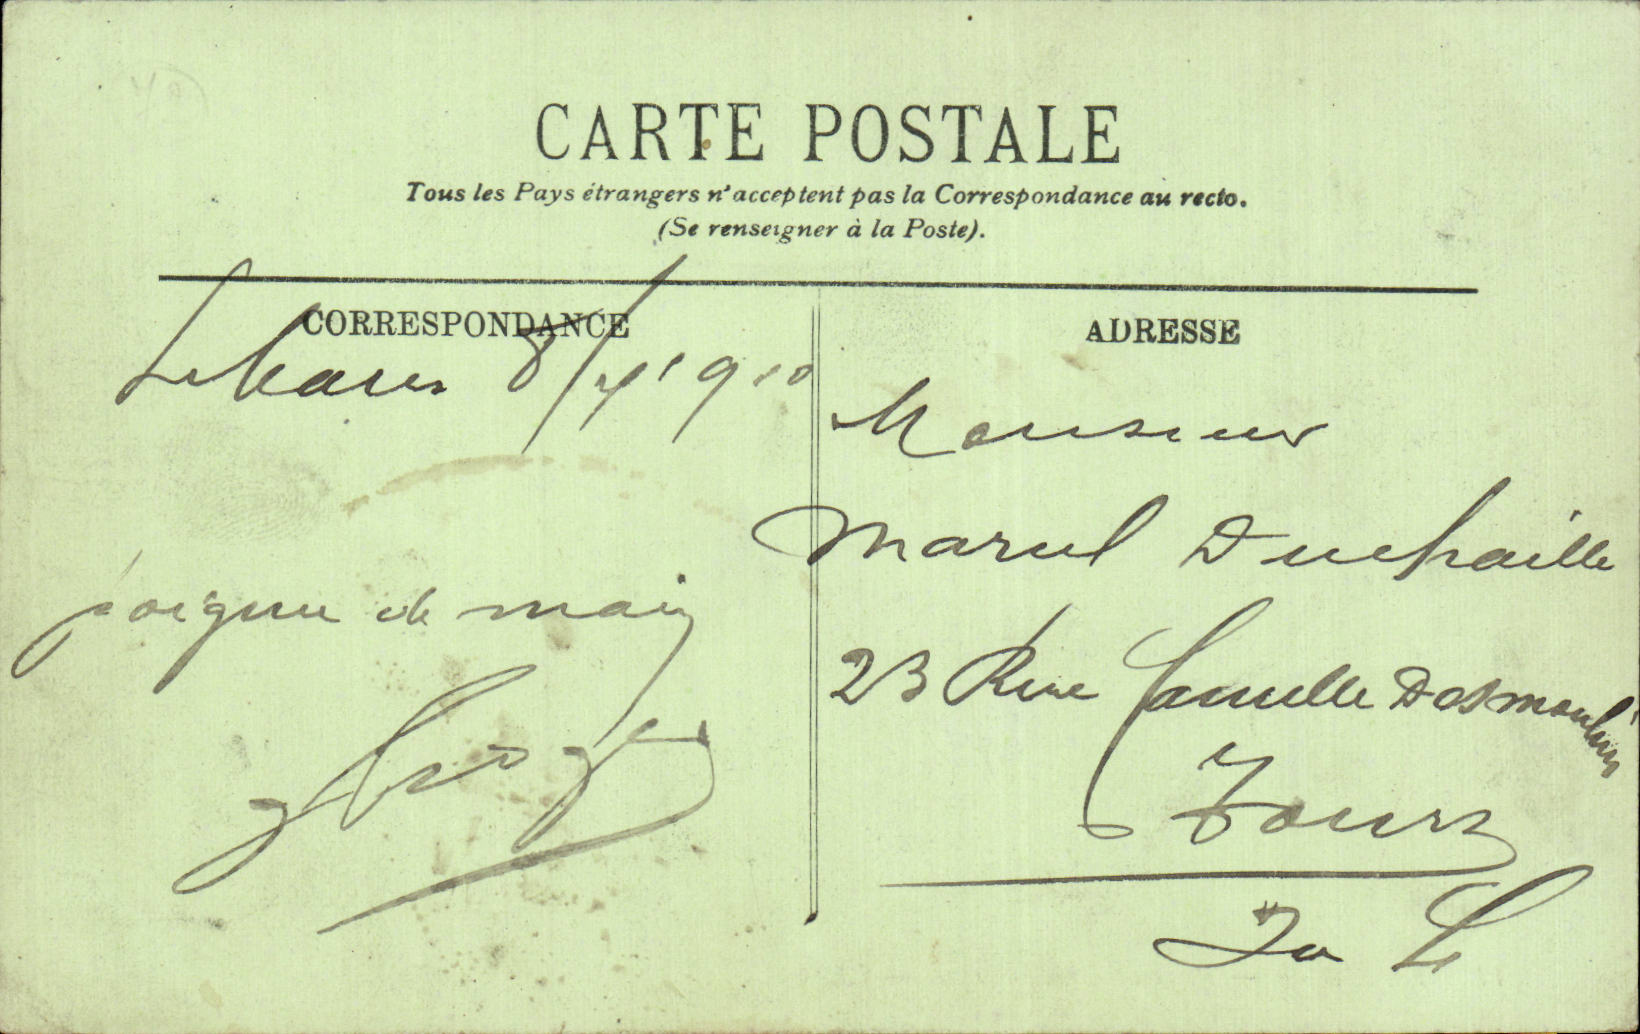 CARTE POSTALE
Tous les Pays étrangers n'acceptent pas la Correspondance au recto.
(Se renseigner à la Poste).
CORRESPONDANCE
8/ 1910
poignée de main
ADRESSE
Monsieur
Marcel Duchaille
23 Rue Camille Desmoulins
Tours
I et L